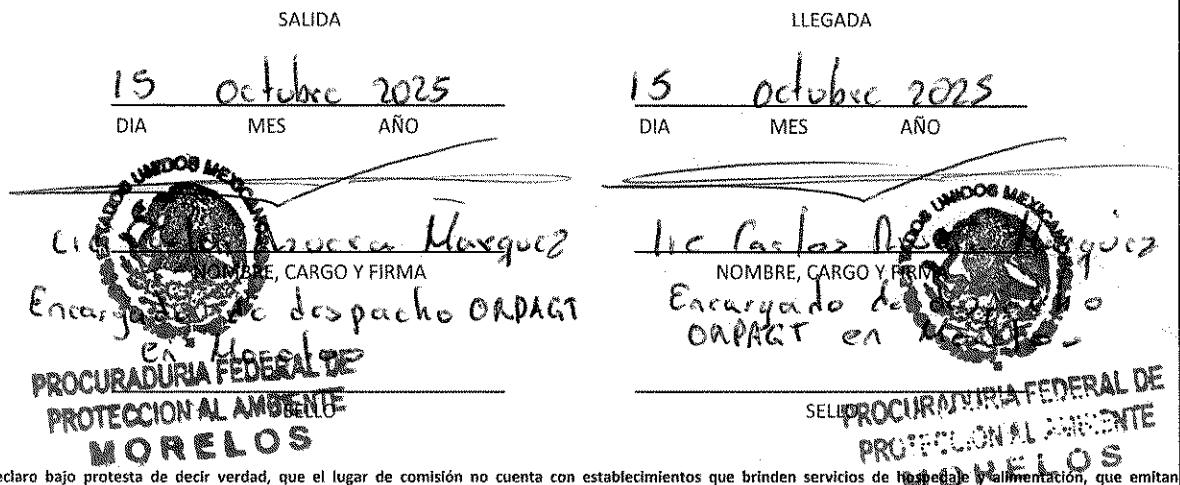 SALIDA
15 Octubre 2025
DIA MES AÑO
ESTADOS UNIDOS MEXICANOS
Marquez
NOMBRE, CARGO Y FIRMA
Encargado de despacho ORPAGT
en Morelos
SELLO
PROCURADURIA FEDERAL DE
PROTECCION AL AMBIENTE
MORELOS
LLEGADA
15 Octubre 2025
DIA MES AÑO
ESTADOS UNIDOS MEXICANOS
lic Carlos Marquez
NOMBRE, CARGO Y FIRMA
Encargado de despacho
ORPAGT en Morelos
SELLO
PROCURADURIA FEDERAL DE
PROTECCION AL AMBIENTE
MORELOS
eclaro bajo protesta de decir verdad, que el lugar de comisión no cuenta con establecimientos que brinden servicios de hospedaje y alimentación, que emitan